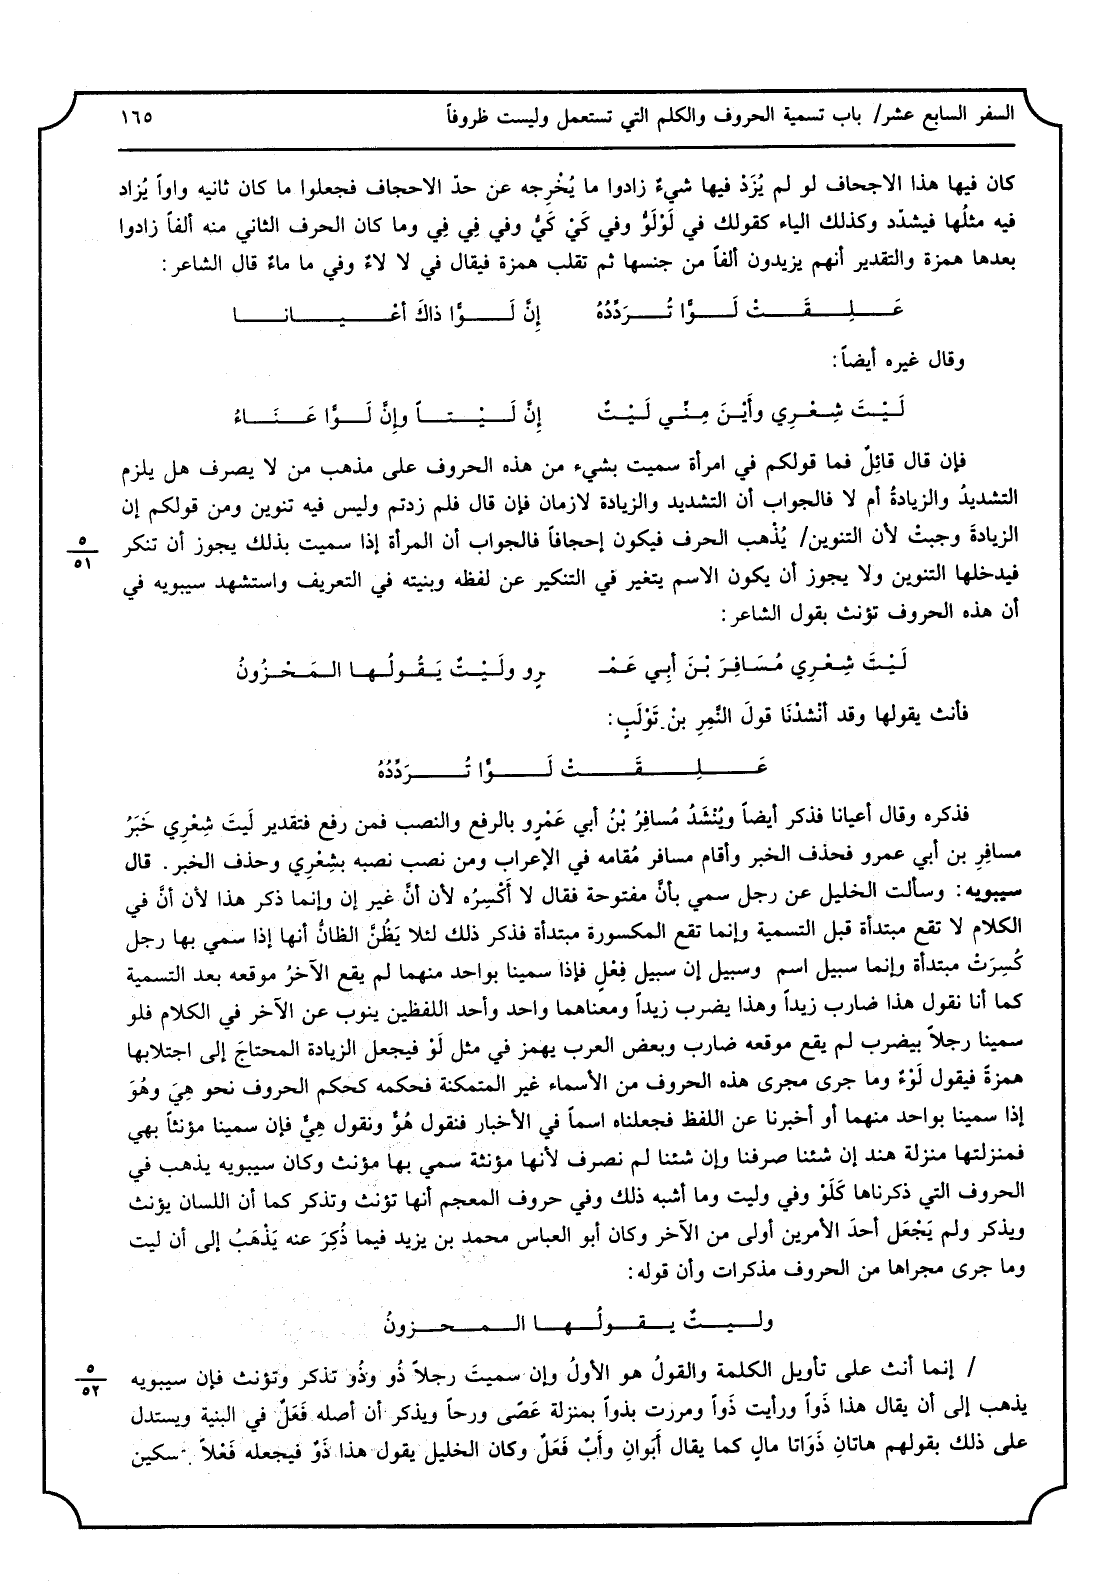 السفر السابع عشر/ باب تسمية الحروف والكلم التي تستعمل وليست ظروفاً ١٦٥
كان فيها هذا الاجحاف لو لم يُزَدْ فيها شيءٌ زادوا ما يُخْرِجه عن حدّ الاحجاف فجعلوا ما كان ثانيه واواً يُزاد
فيه مثلُها فيشدّد وكذلك الياء كقولك في لَوْلَوٌّ وفي كَيْ كَيٌّ وفي فِي فِي وما كان الحرف الثاني منه ألفاً زادوا
بعدها همزة والتقدير أنهم يزيدون ألفاً من جنسها ثم تقلب همزة فيقال في لا لاءٌ وفي ما ماءٌ قال الشاعر:
عَـلِـقَـتْ لَـوًّا تُـرَدِّدُهُ إنَّ لَـوًّا ذاكَ أعْـيـانـا
وقال غيره أيضاً:
لَيْتَ شِعْرِي وأَيْنَ مِنِّي لَيْتٌ إنَّ لَيْتاً وإنَّ لَوًّا عَنَاءُ
فإن قال قائِلٌ فما قولكم في امرأة سميت بشيء من هذه الحروف على مذهب من لا يصرف هل يلزم
التشديدُ والزيادةُ أم لا فالجواب أن التشديد والزيادة لازمان فإن قال فلم زدتم وليس فيه تنوين ومن قولكم إن
الزيادةَ وجبتْ لأن التنوين/ يُذْهب الحرف فيكون إحجافاً فالجواب أن المرأة إذا سميت بذلك يجوز أن تنكر
٥
٥١
فيدخلها التنوين ولا يجوز أن يكون الاسم يتغير في التنكير عن لفظه وبنيته في التعريف واستشهد سيبويه في
أن هذه الحروف تؤنث بقول الشاعر:
لَيْتَ شِعْرِي مُسَافِرَ بْنَ أبِي عَمْـ ـرِو ولَيْتٌ يَقُولُها المَحْزُونُ
فأنث يقولها وقد أنْشدْنَا قولَ النَّمِرِ بنْ تَوْلَبٍ:
عَـلِـقَـتْ لَـوًّا تُـرَدِّدُهُ
فذكره وقال أعيانا فذكر أيضاً ويُنْشَدُ مُسافِرُ بْنُ أبي عَمْرٍو بالرفع والنصب فمن رفع فتقدير لَيتَ شِعْرِي خَبَرُ
مسافِرِ بن أبي عمرو فحذف الخبر وأقام مسافر مُقامه في الإعراب ومن نصب نصبه بشِعْرِي وحذف الخبر. قال
سيبويه: وسألت الخليل عن رجل سمي بأنَّ مفتوحة فقال لا أَكْسِرُه لأن أنَّ غير إن وإنما ذكر هذا لأن أنَّ في
الكلام لا تقع مبتدأة قبل التسمية وإنما تقع المكسورة مبتدأة فذكر ذلك لئلا يَظُنَّ الظانُّ أنها إذا سمي بها رجل
كُسِرَتْ مبتدأة وإنما سبيل اسم وسبيل إن سبيل فِعْلٍ فإذا سمينا بواحد منهما لم يقع الآخرُ موقعه بعد التسمية
كما أنا نقول هذا ضارب زيداً وهذا يضرب زيداً ومعناهما واحد وأحد اللفظين ينوب عن الآخر في الكلام فلو
سمينا رجلاً بيضرب لم يقع موقعه ضارب وبعض العرب يهمز في مثل لَوْ فيجعل الزيادة المحتاجَ إلى اجتلابها
همزةً فيقول لَوْءٌ وما جرى مجرى هذه الحروف من الأسماء غير المتمكنة فحكمه كحكم الحروف نحو هِيَ وهُوَ
إذا سمينا بواحد منهما أو أخبرنا عن اللفظ فجعلناه اسماً في الأخبار فنقول هُوٌّ ونقول هِيٌّ فإن سمينا مؤنثاً بهي
فمنزلتها منزلة هند إن شئنا صرفنا وإن شئنا لم نصرف لأنها مؤنثة سمي بها مؤنث وكان سيبويه يذهب في
الحروف التي ذكرناها كَلَوْ وفي وليت وما أشبه ذلك وفي حروف المعجم أنها تؤنث وتذكر كما أن اللسان يؤنث
ويذكر ولم يَجْعَل أحدَ الأمرين أولى من الآخر وكان أبو العباس محمد بن يزيد فيما ذُكِرَ عنه يَذْهَبُ إلى أن ليت
وما جرى مجراها من الحروف مذكرات وأن قوله:
ولـيـتٌ يـقـولُـهـا الـمـحـزونُ
/ إنما أنث على تأويل الكلمة والقولُ هو الأولُ وإن سميتَ رجلاً ذُو وذُو تذكر وتؤنث فإن سيبويه
٥
٥٢
يذهب إلى أن يقال هذا ذَواً ورأيت ذَواً ومررت بذواً بمنزلة عَصًى ورحاً ويذكر أن أصله فَعَلٌ في البنية ويستدل
على ذلك بقولهم هاتانِ ذَوَاتا مالٍ كما يقال أَبَوانِ وأَبٌ فَعَلٌ وكان الخليل يقول هذا ذَوٌ فيجعله فَعْلاً بسكين